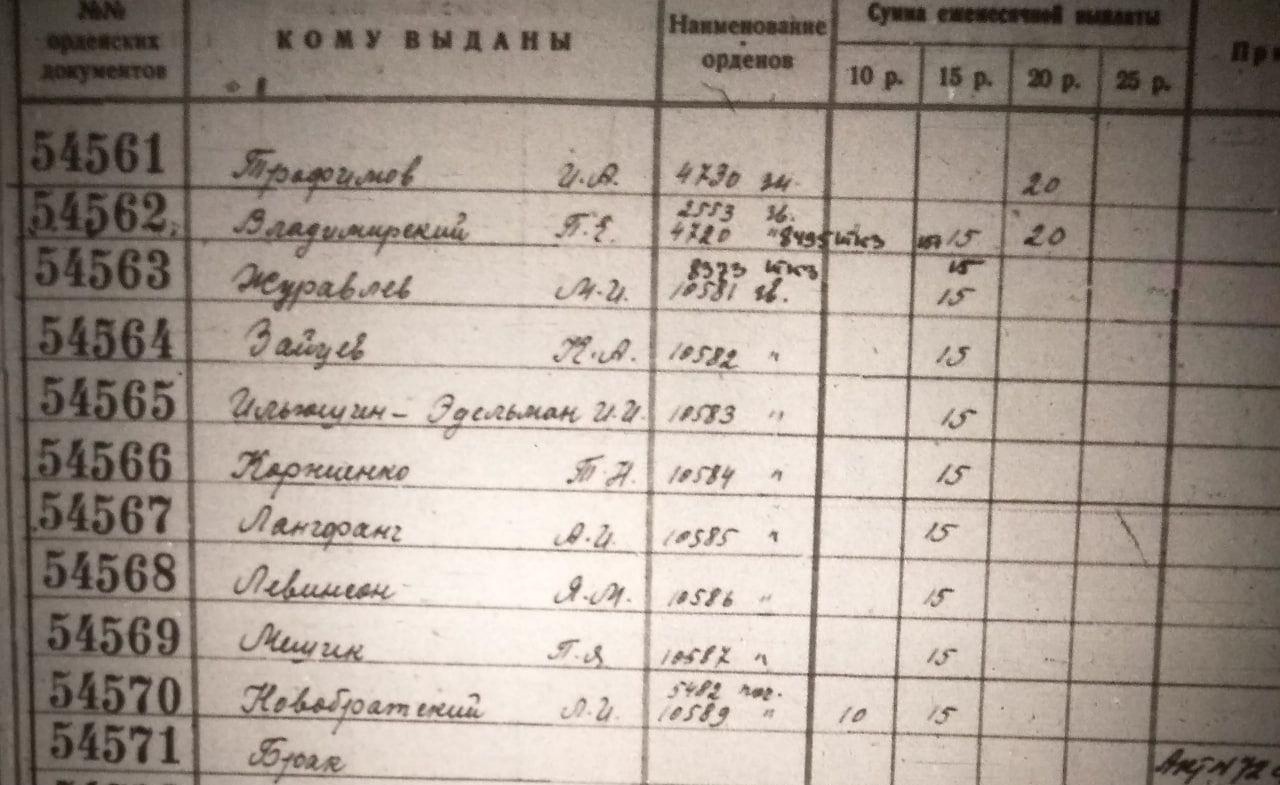 №№ орденских документов КОМУ ВЫДАНЫ Наименование орденов Сумма ежемесячной выплаты
10 р. 15 р. 20 р. 25 р.
54561 Трофимов И.А. 4730 зн. 20
2553 зв.
54562 Владимирский П.Е. 4720 " 8495 ткз 15 20
8373 ткз 15
54563 Журавлев М.И. 10581 зв. 15
54564 Зайцев Н.А. 10582 " 15
54565 Ильюшин-Эдельман И.И. 10583 " 15
54566 Корниенко Т.Н. 10584 " 15
54567 Лангфанг А.И. 10585 " 15
54568 Левинсон Я.М. 10586 " 15
54569 Мешик П.Я. 10587 " 15
5482 поч.
54570 Новобратский Л.И. 10589 " 10 15
54571 Брак Акт N 72